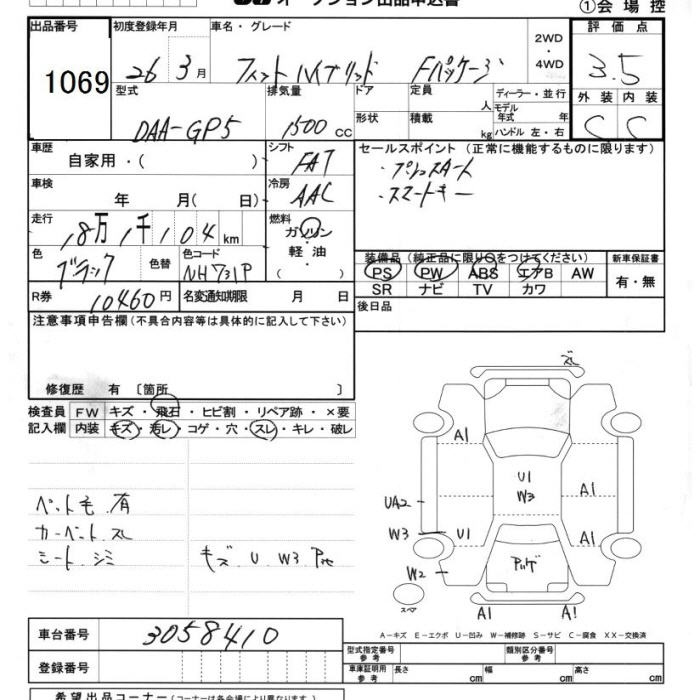 オークション出品申込書
①会場控
出品番号 初度登録年月 車名・グレード 評価点
1069 26年3月 フィットハイブリッド Fパッケージ 2WD・4WD 3.5
型式 排気量 ドア 定員 人 ディーラー・並行 外装 内装
DAA-GP5 1500cc 形状 積載 kg モデル年式 年 ハンドル 左・右 C C
車歴 自家用・( ) シフト FAT セールスポイント (正常に機能するものに限ります)
・プッシュスタート
・スマートキー
車検 年 月(日) 冷房 AAC
走行 18万1千104km 燃料 ガソリン・軽油
色 ブラック 色替 色コード NH731P
装備品 (純正品に限り○をつけてください) 新車保証書
PS PW ABS エアB AW 有・無
SR ナビ TV カワ
R券 10460円 名変通知期限 月 日 後日品
注意事項申告欄 (不具合内容等は具体的に記入して下さい)
修復歴 有 〔箇所 〕
検査員 FW キズ・飛石・ヒビ割・リペア跡・×要
記入欄 内装 キズ・汚レ・コゲ・穴・スレ・キレ・破レ
ペット毛 有
カーペット スレ
シート シミ キズ U W3
スレ
A1
U1
W3
A1
UA2
W3 U1 A1
W2
スペア
A1 A1
A-キズ E-エクボ U-凹み W-補修跡 S-サビ C-腐食 XX-交換済
車台番号 3058410
型式指定番号 参考 類別区分番号 参考
登録番号
車庫証明用 参考 長さ cm 幅 cm 高さ cm
希望出品コーナー (コーナーは各会場により異なります)